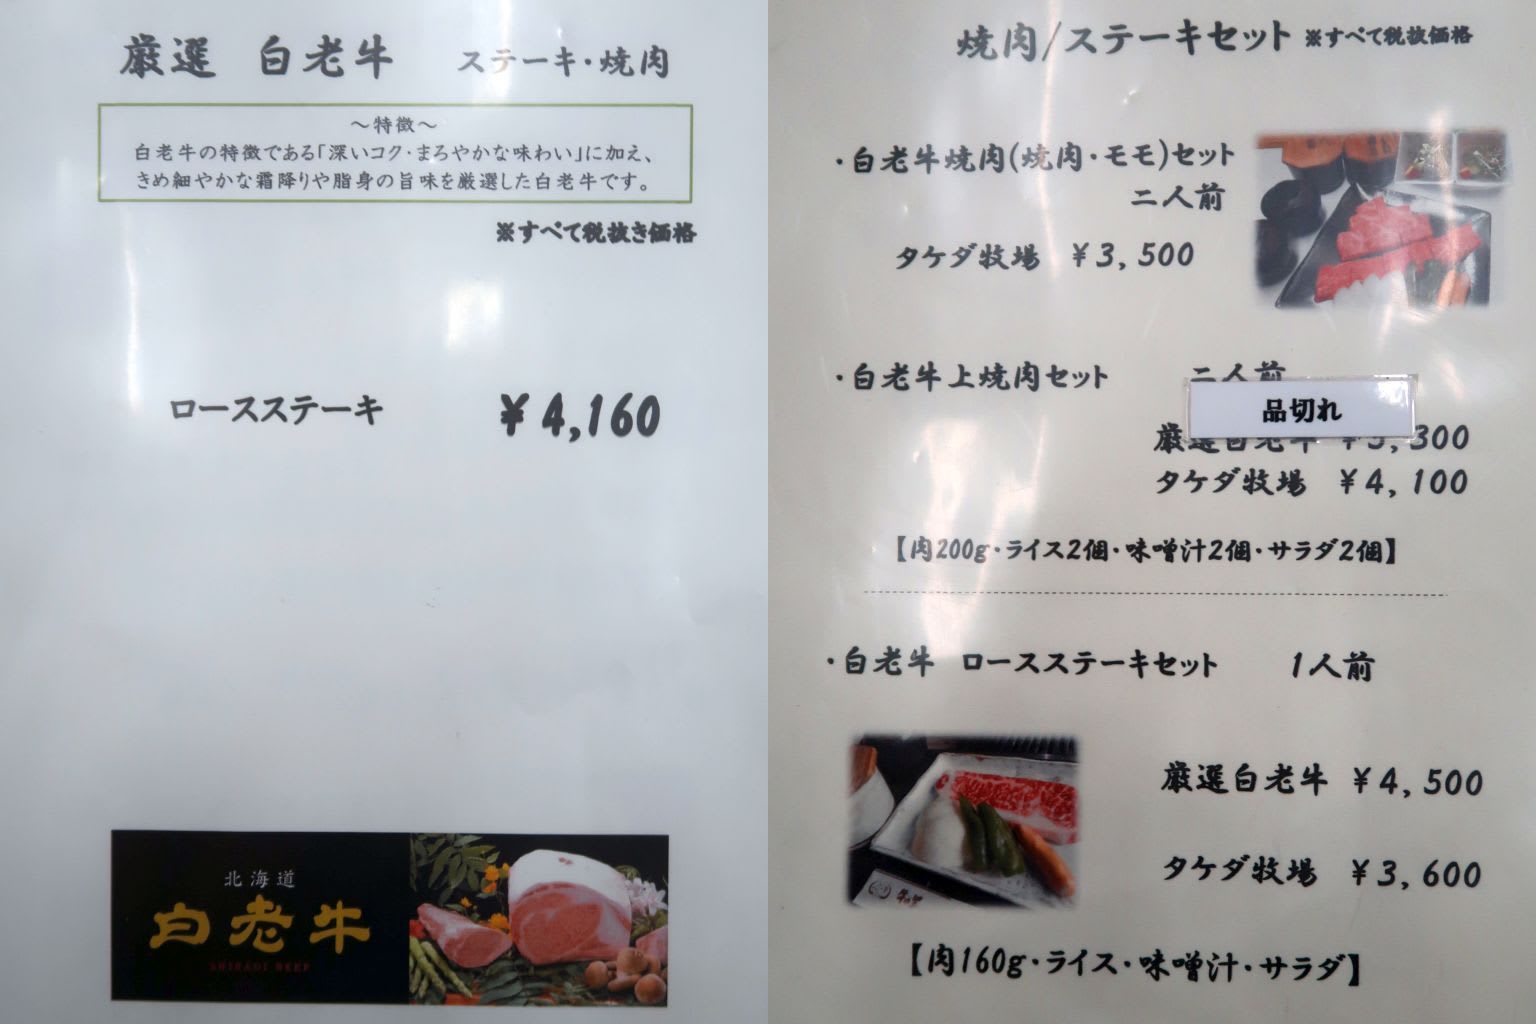 厳選 白老牛 ステーキ・焼肉
～特徴～
白老牛の特徴である「深いコク・まろやかな味わい」に加え、
きめ細やかな霜降りや脂身の旨味を厳選した白老牛です。
※すべて税抜き価格
ロースステーキ ￥4,160
北海道
白老牛
SHIRAOI BEEF
焼肉/ステーキセット ※すべて税抜価格
・白老牛焼肉(焼肉・モモ)セット
二人前
タケダ牧場 ￥3,500
・白老牛上焼肉セット 二人前
品切れ
厳選白老牛 ￥5,300
タケダ牧場 ￥4,100
【肉200g・ライス2個・味噌汁2個・サラダ2個】
・白老牛 ロースステーキセット 1人前
厳選白老牛 ￥4,500
タケダ牧場 ￥3,600
【肉160g・ライス・味噌汁・サラダ】